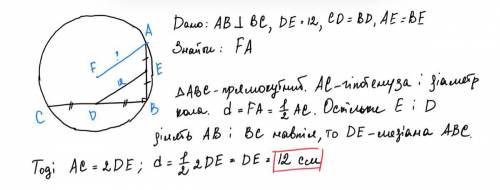 Дано: AB⊥BC, DE=12, CD=BD, AE=BE
Знайти: FA
A
?
F
12
E
C
D
B
ΔABC-прямокутний. AC-гіпотенуза і діаметр
кола. d = FA = 1/2 AC. Оскільки E і D
ділять AB і BC навпіл, то DE-медіана ABC.
Тоді AC = 2DE; d = 1/2 2DE = DE = 12 см